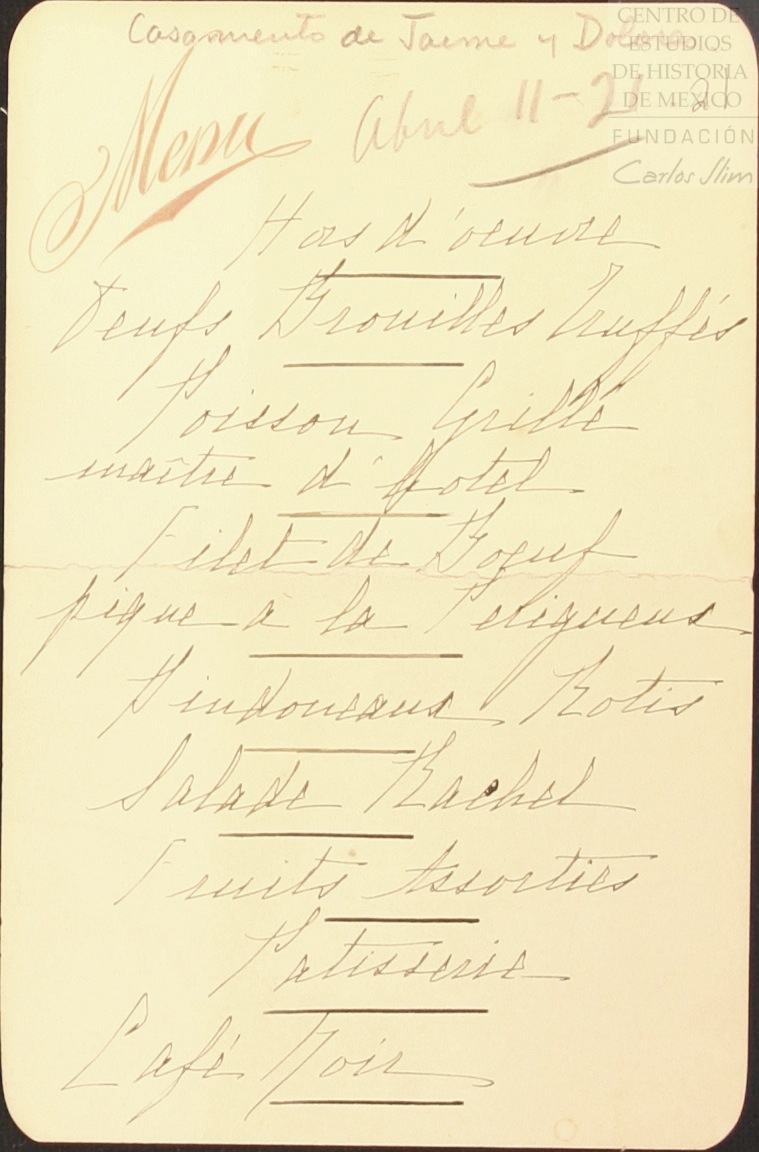 Casamiento de Jaime y Dolores
CENTRO DE
ESTUDIOS
DE HISTORIA
DE MEXICO
FUNDACIÓN
Carlos Slim
Menu
Abril 11-21
21
Hors d'oeuvre
Oeufs Brouilles Truffés
Poisson Grillé
maître d'hotel
Filet de Boeuf
pique a la Perigueux
Dindoneaux Rotis
Salade Rachel
Fruits Assorties
Patisserie
Café Noir